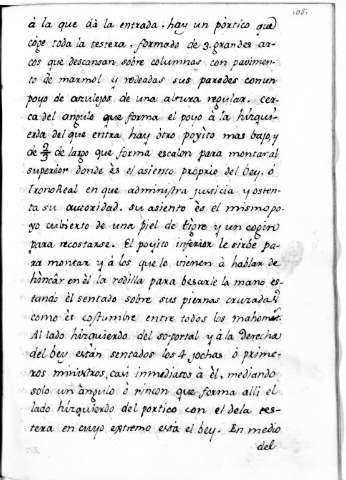 105.
à la que dà la entrada, hay un pòrtico que
coge toda la testera, formado de 3. grandes ar-
cos que descansan sobre columnas con pavimen-
to de marmol y rodeadas sus paredes con un
poyo de azulejos de una altura regular. cer-
ca del angulo que forma el poyo à la hizqui-
erda del que entra hay òtro poyito mas bajo, y
de de largo que forma escalon para montar al
superior donde ès el asiento pròprio del Bey, ò
Trono Real en que administra justicia y osten-
ta su autoridad. su asiento ès el mismo po-
yo cubierto de una piel de tigre y un cogin
para recostarse. El poyito inferior le sirbe pa-
ra montar y à los que lo vienen à hablar de
hincàr en èl la rodilla para besarle la mano es-
tando èl sentado sobre sus piernas cruzadas
como ès costumbre entre todos los mahomet.
Al lado hizquierdo del soportal y à la derecha
del bey estàn sentados los 4 jochas ò prime-
ros ministros, casi inmediatos à èl, mediando
solo un àngulo ò rincon que forma alli el
lado hizquierdo del portico con el de la tes-
tera en cuyo extremo està el bey. En medio
del